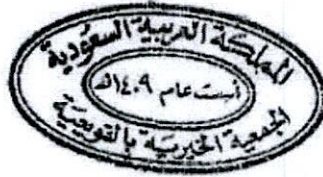 المملكة العربية السعودية
أسست عام ١٤٠٩هـ
الجمعية الخيرية بالقويعية